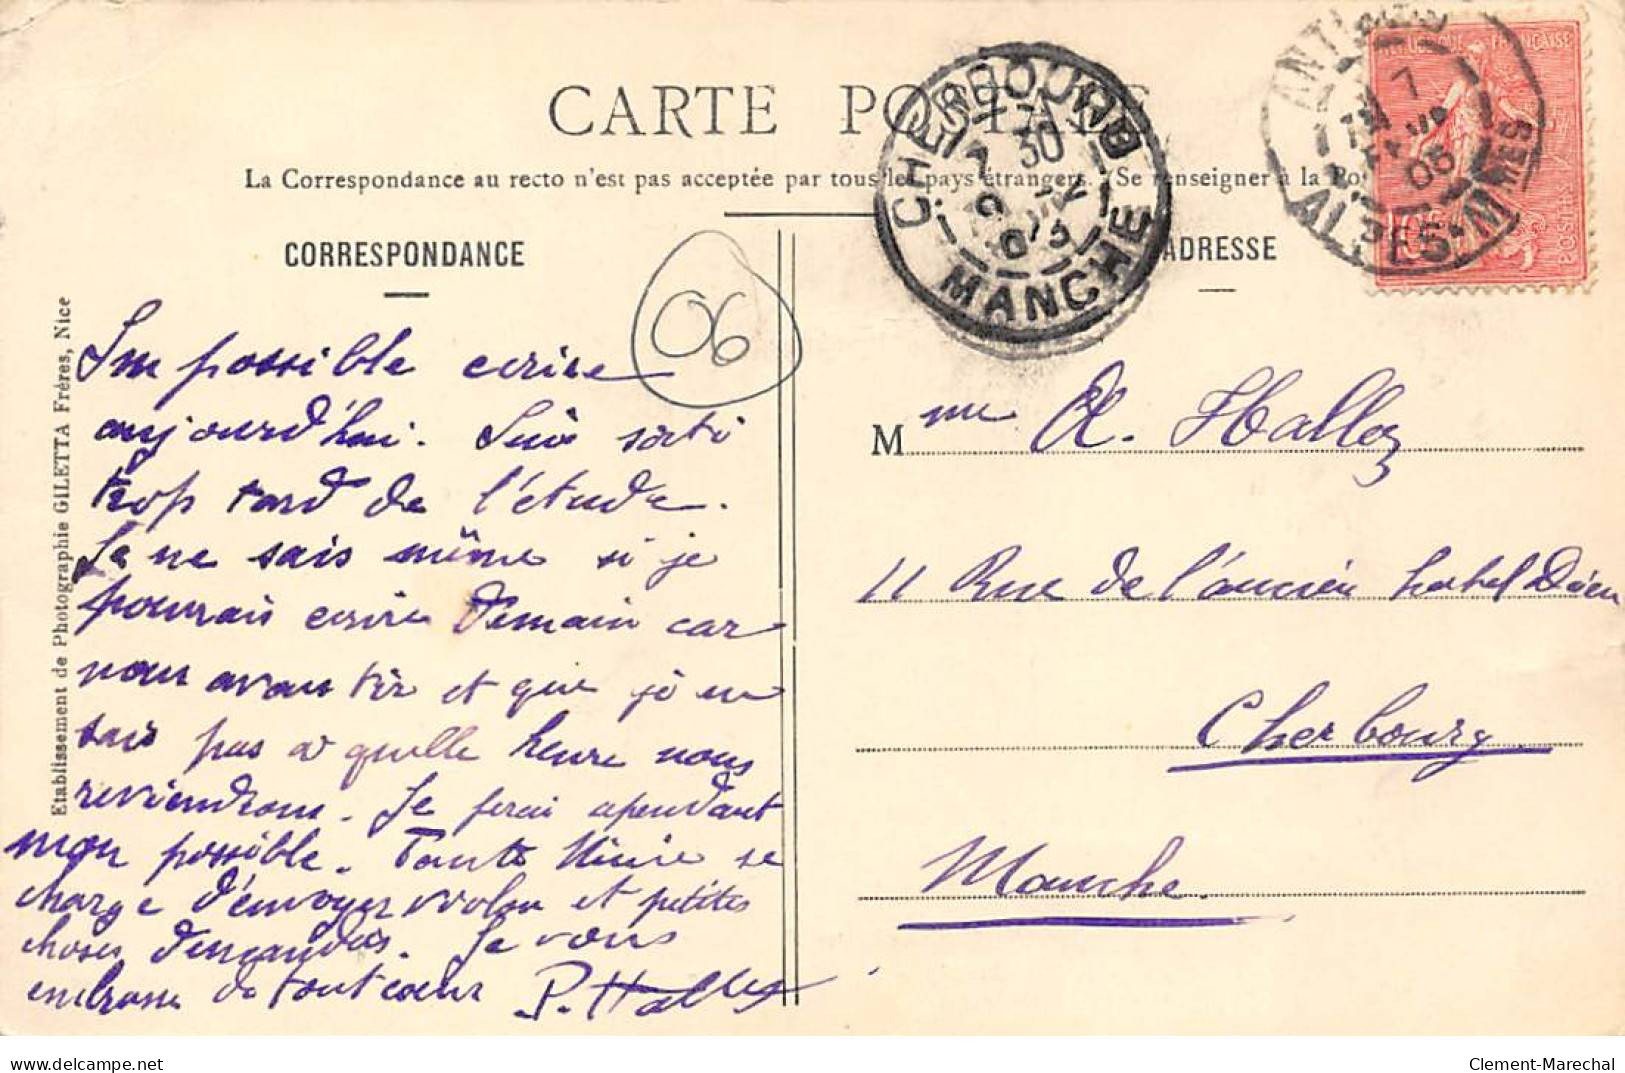 CARTE POSTALE
La Correspondance au recto n'est pas acceptée par tous les pays étrangers. (Se renseigner à la Pos
CORRESPONDANCE
Impossible ecrire
aujourd'hui. Suis sorti
trop tard de l'étude.
Je ne sais même si je
pourrais ecrire demain car
nous avons tir et que je ne
sais pas a quelle heure nous
reviendrons. Je ferai cependant
mon possible. Tante se
charge d'envoyer violon et petites
choses demandées. Je vous
embrasse de tout cœur P. Halley
Etablissement de Photographie GILETTA Frères, Nice
06
ADRESSE
Mme A. Halley
11 Rue de l'ancien hotel Dieu
Cherbourg
Manche.
CHERBOURG
7 30
MANCHE
ANTIBES
7
05
ALPES-MMES
REPUBLIQUE FRANÇAISE
10c
POSTES
delcampe.net
Clement-Marechal